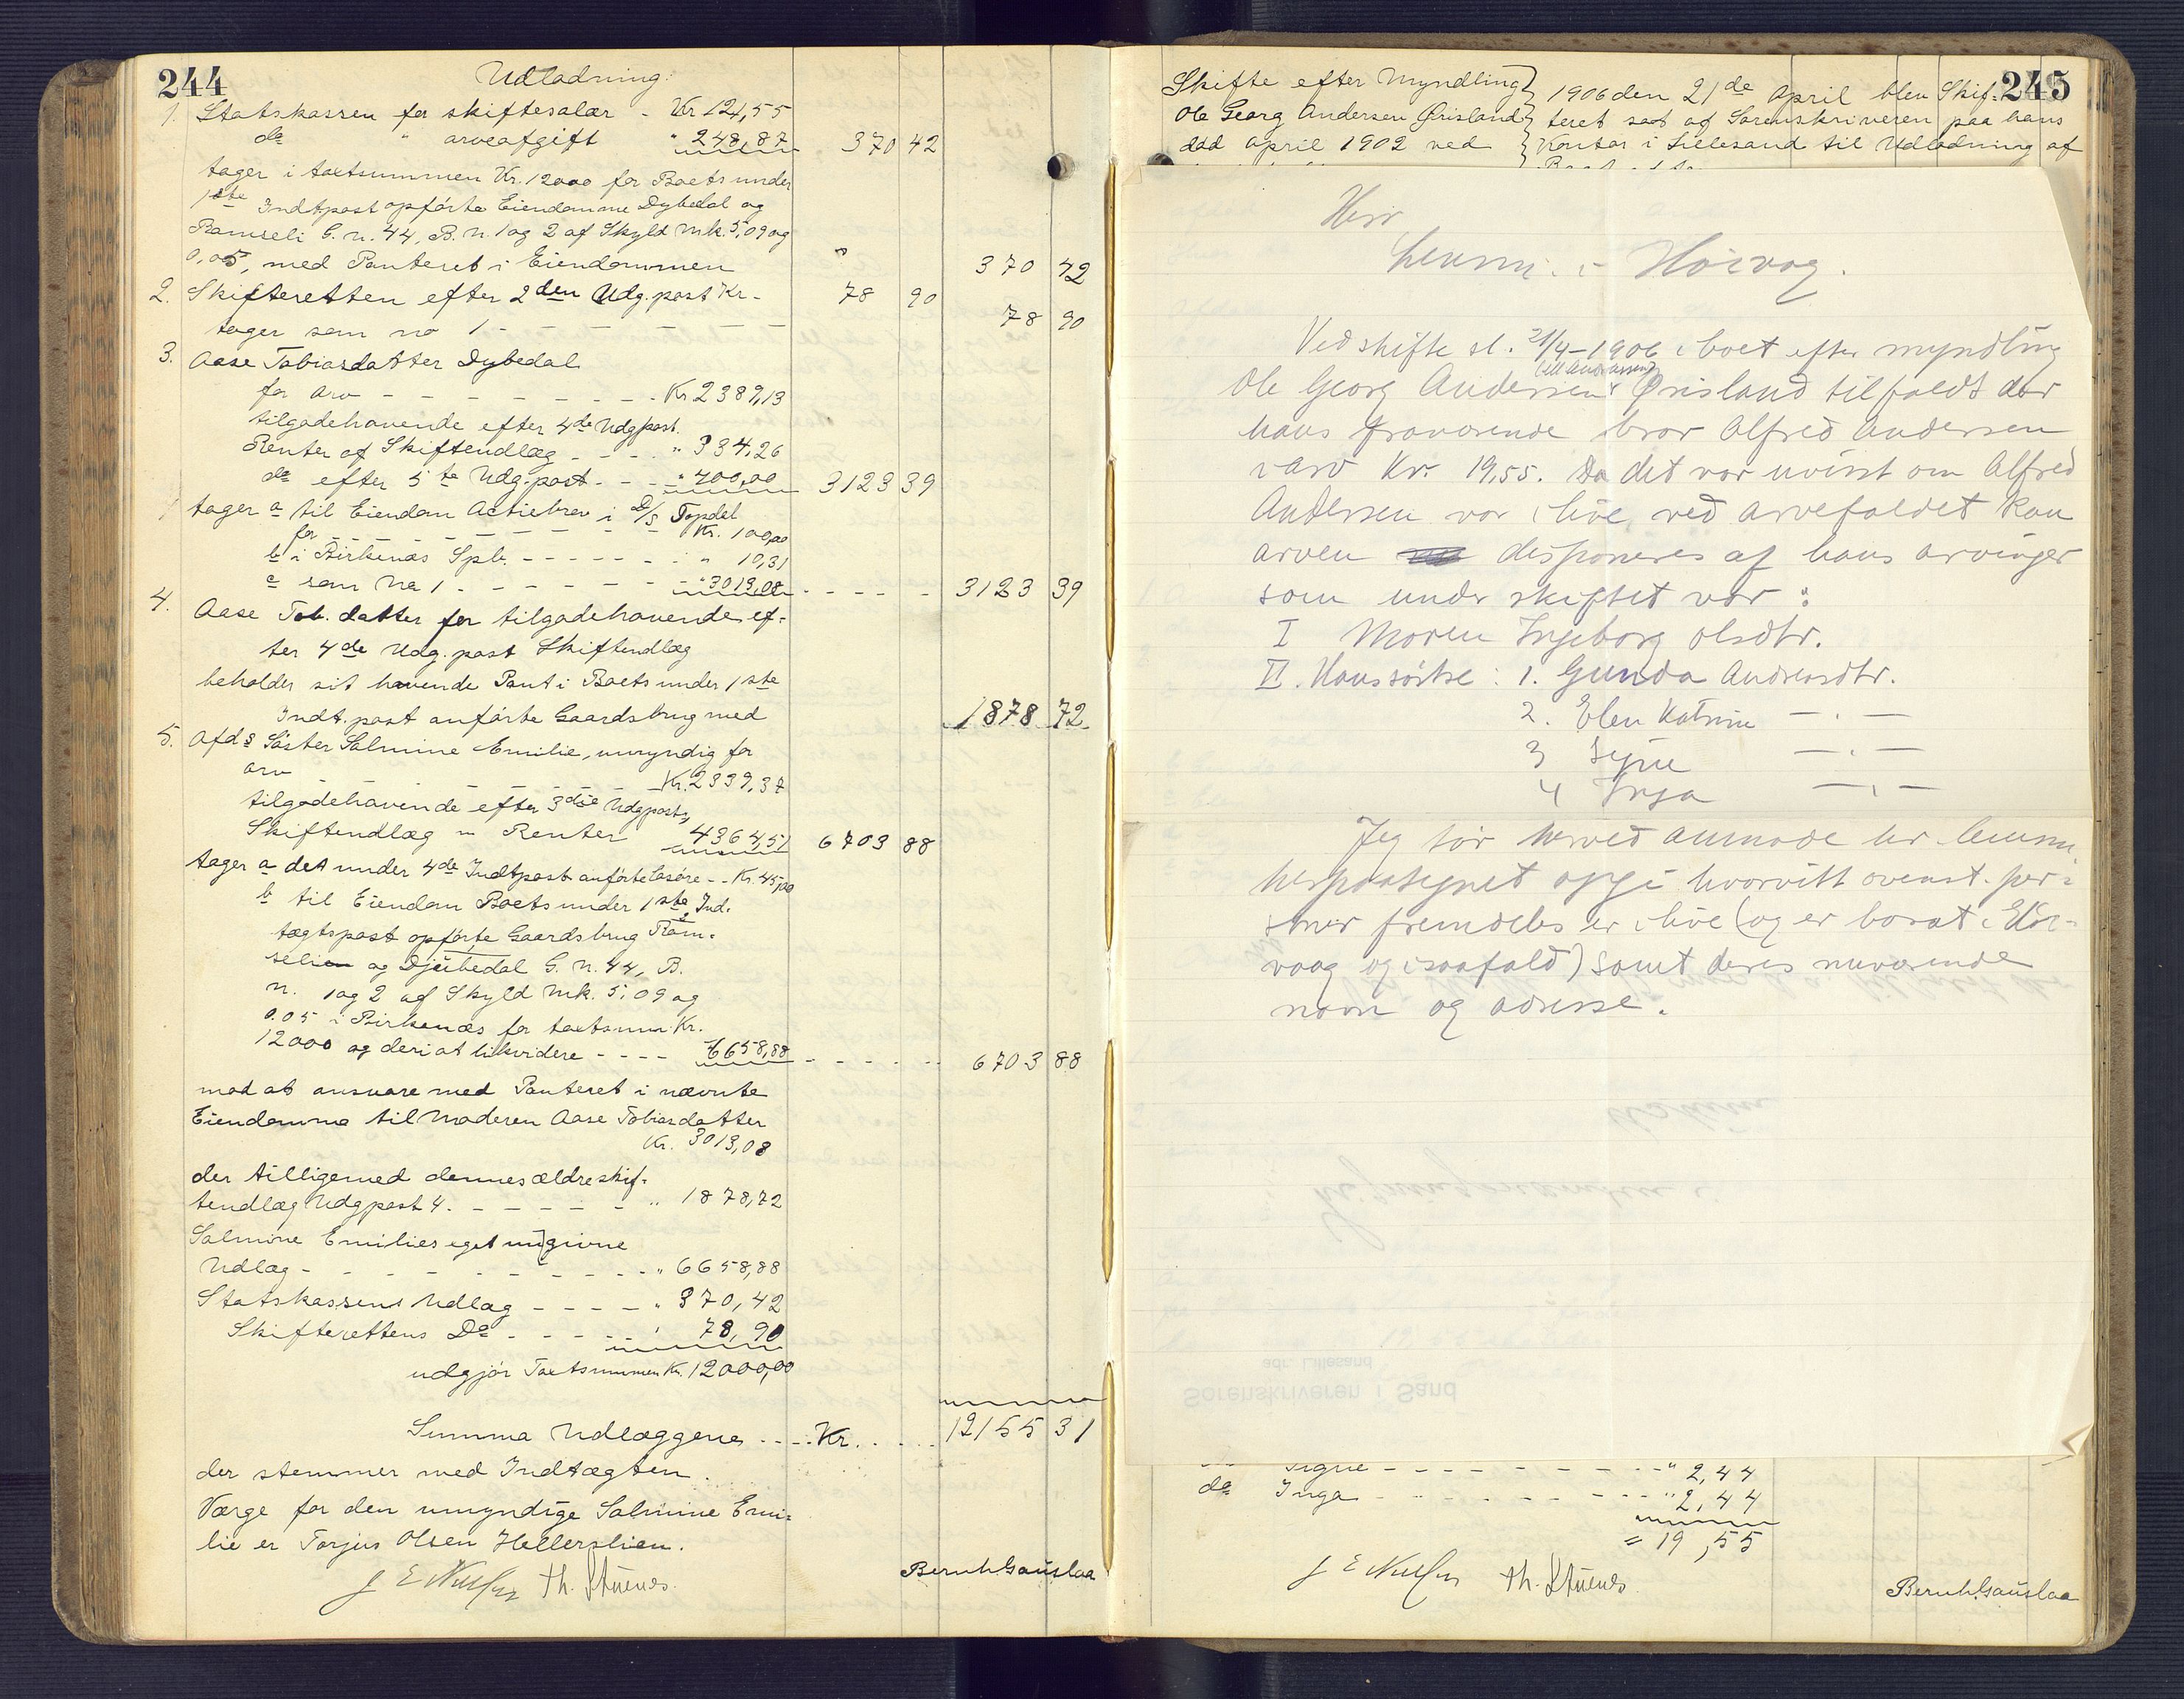 244
Udlodning.
1. Statskassen for skiftesalær - Kr 121,55
do " arveafgift " 248,87 370 42
tager i taxtsummen Kr. 12000 for Boets under
1ste Indtpost opførte Eiendomme Dybedal og
Ramseli G. n. 44, B. n. 1 og 2 af Skyld mk. 5,09 og
0,05, med Panteret i Eiendommen 370 42
2. Skifteretten efter 2den Udg. post Kr - 78 90
tager som no 1 - - - - - - 78 90
3. Aase Tobiasdatter Dybedal
for Arv - - - - - - - - Kr 2389,13
tilgodehavende efter 4de Udgpost.
Renter af Skifteudlæg - - - " 334,26
do efter 5te Udg. post - - - " 400,00 3123 39
tager a til Eiendom Actiebrev i D/S Topdal
for - - - - - - - Kr. 100,00
b i Birkenæs Spb. - - - - - " 10,31
c som No 1 - - - - - " 3013,08 - - - - 3123 39
4. Aase Tob. datter for tilgodehavende ef-
ter 4de Udg. post Skifteudlæg
beholder sit havende Pant i Boets under 1ste
Indt. post anførte Gaardsbrug med 1878 72
5. Afds Søster Salmine Emilie, umyndig for
arv - - - - - - - Kr. 2339,37
tilgodehavende efter 3die Udgpost,
Skifteudlæg m Renter 4364,51 6703 88
tager a det under 4de Indtpost anførte Løsøre - - Kr. 45,00
b til Eiendom Boets under 1ste Ind-
tægtspost opførte Gaardsbrug Ram-
selien og Djubedal G. n. 44, B.
n. 1 og 2 af Skyld mk. 5,09 og
0.05 i Birkenæs for taxtsum Kr.
12000 og deri at likvidere - - - - 6658,88 - - - - 6703 88
mod at ansvare med Panteret i nævnte
Eiendomme til Moderen Aase Tobiasdatter
Kr. 3013,08
der tilligemed dennes ældre skif-
teudlæg Udgpost 4. - - - - - " 1878,72
Salmine Emilies eget
Udlæg - - - - - - - - - " 6658,88
Statskassens Udlæg - - - - " 370,42
Skifterettens Do - - - - - " 78,90
udgjør Taxtsummen Kr. 12000,00
Summa Udlæggene - - - Kr. - - - 12155 31
der stemmer med Indtægten.
Værge for den umyndige Salmine Emi-
lie er Torjus Olsen Hellerslien.
Th. Stuenes. Bernh. Gauslaa
245
Skifte efter Myndling
Ole Georg Andersen Ørisland
død April 1902 ved
1906 den 21de April blev Skif-
teret sat af Sorenskriveren paa hans
Kontor i Lillesand til Udlodning af
Herr
Lensm. i Høivaag.
Ved skifte sl. 21/4-1906 i boet efter myndling
Ole Georg Andersen Ørisland tilfaldt der
hans fraværende bror Alfred Andersen
i arv Kr. 19,55. Da det var uvisst om Alfred
Andersen var i live ved arvefaldet kan
arven disponeres af hans arvinger
som under skiftet var:
I Moren Ingeborg Olsdtr.
II. Hans søstre: 1. Gunda Andreasdtr.
2. Elen Katrine — . —
3 Syne — . —
4 Inga — . —
Jeg tør herved anmode hr. lensm.
hespaategnet opgi hvorvitt ovenst. per-
soner fremdeles er i live (og er bosat i Høi-
vaag og i saafald) samt deres nuværende
navn og adresse.
Sorenskriveren i Sand
adr. Lillesand
Signe - - - - - - - - " 2,44
do Inga - - - - - - - - " 2,44
= 19,55
Th. Stuenes. Bernh. Gauslaa